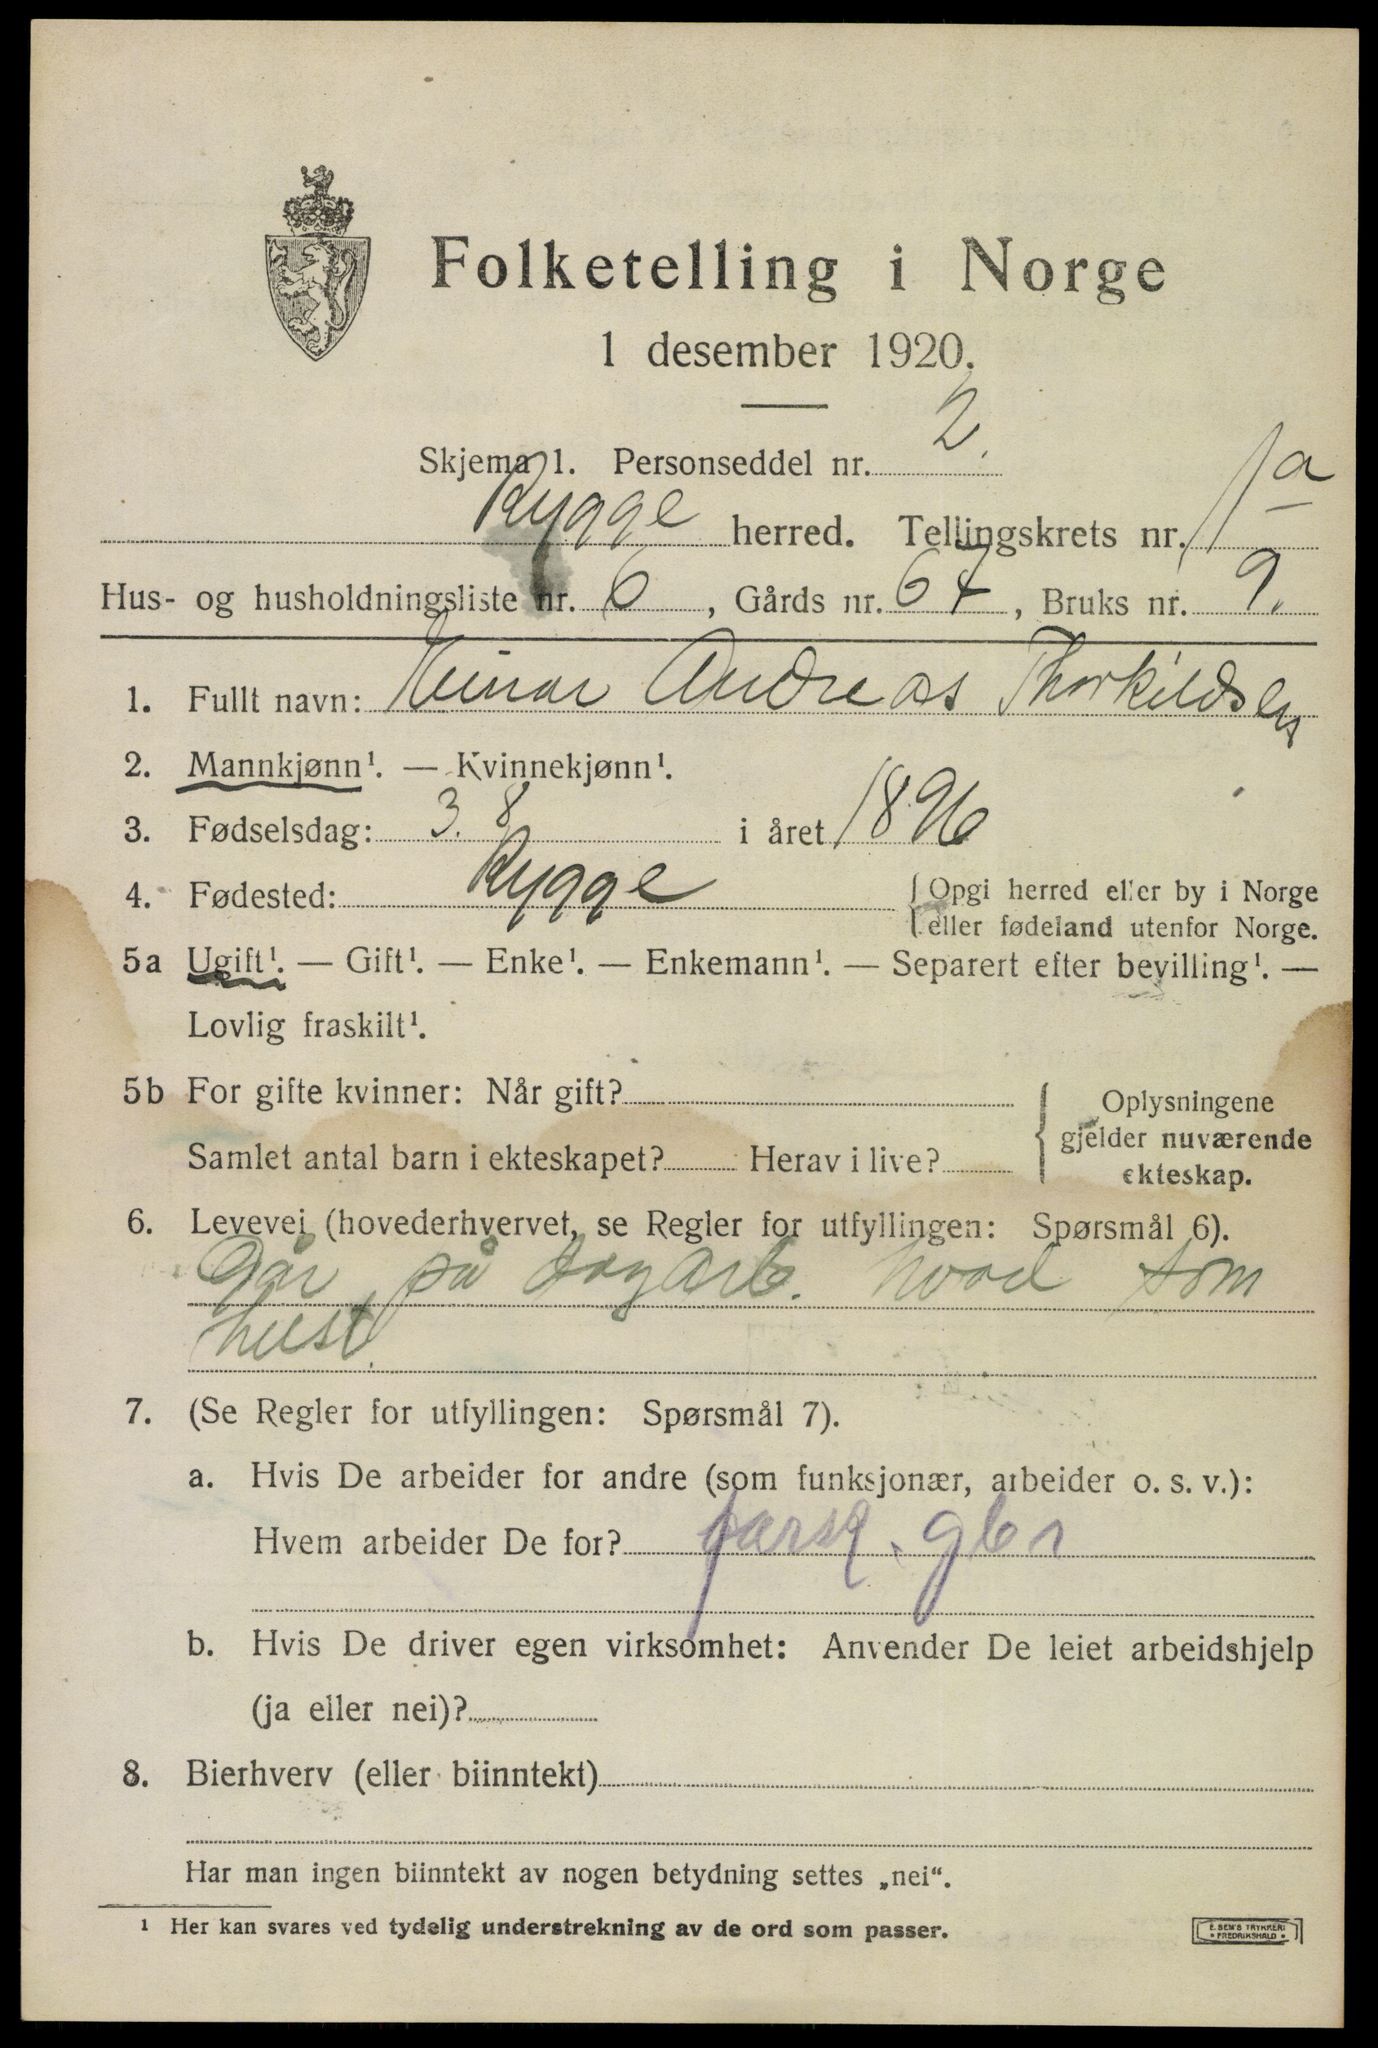 Folketelling i Norge
1 desember 1920.
Skjema 1. Personseddel nr. 2.
Rygge herred. Tellingskrets nr. 1a
Hus- og husholdningsliste nr. 6, Gårds nr. 67, Bruks nr. 9.
1. Fullt navn: Einar Andreas Thorkildsen
2. Mannkjønn¹. — Kvinnekjønn¹.
3. Fødselsdag: 3. 8 i året 1896
4. Fødested: Rygge { Opgi herred eller by i Norge
eller fødeland utenfor Norge.
5a Ugift¹. — Gift¹. — Enke¹. — Enkemann¹. — Separert efter bevilling¹. —
Lovlig fraskilt¹.
5b For gifte kvinner: Når gift?
Samlet antal barn i ekteskapet? Herav i live?
Oplysningene
gjelder nuværende
ekteskap.
6. Levevei (hovederhvervet, se Regler for utfyllingen: Spørsmål 6).
Går på dagarb. hvad som
helst.
7. (Se Regler for utfyllingen: Spørsmål 7).
a. Hvis De arbeider for andre (som funksjonær, arbeider o. s. v.):
Hvem arbeider De for? forsk.
b. Hvis De driver egen virksomhet: Anvender De leiet arbeidshjelp
(ja eller nei)?
8. Bierhverv (eller biinntekt)
Har man ingen biinntekt av nogen betydning settes „nei“.
¹ Her kan svares ved tydelig understrekning av de ord som passer.
E. SEM'S TRYKKERI
• FREDRIKSHALD •